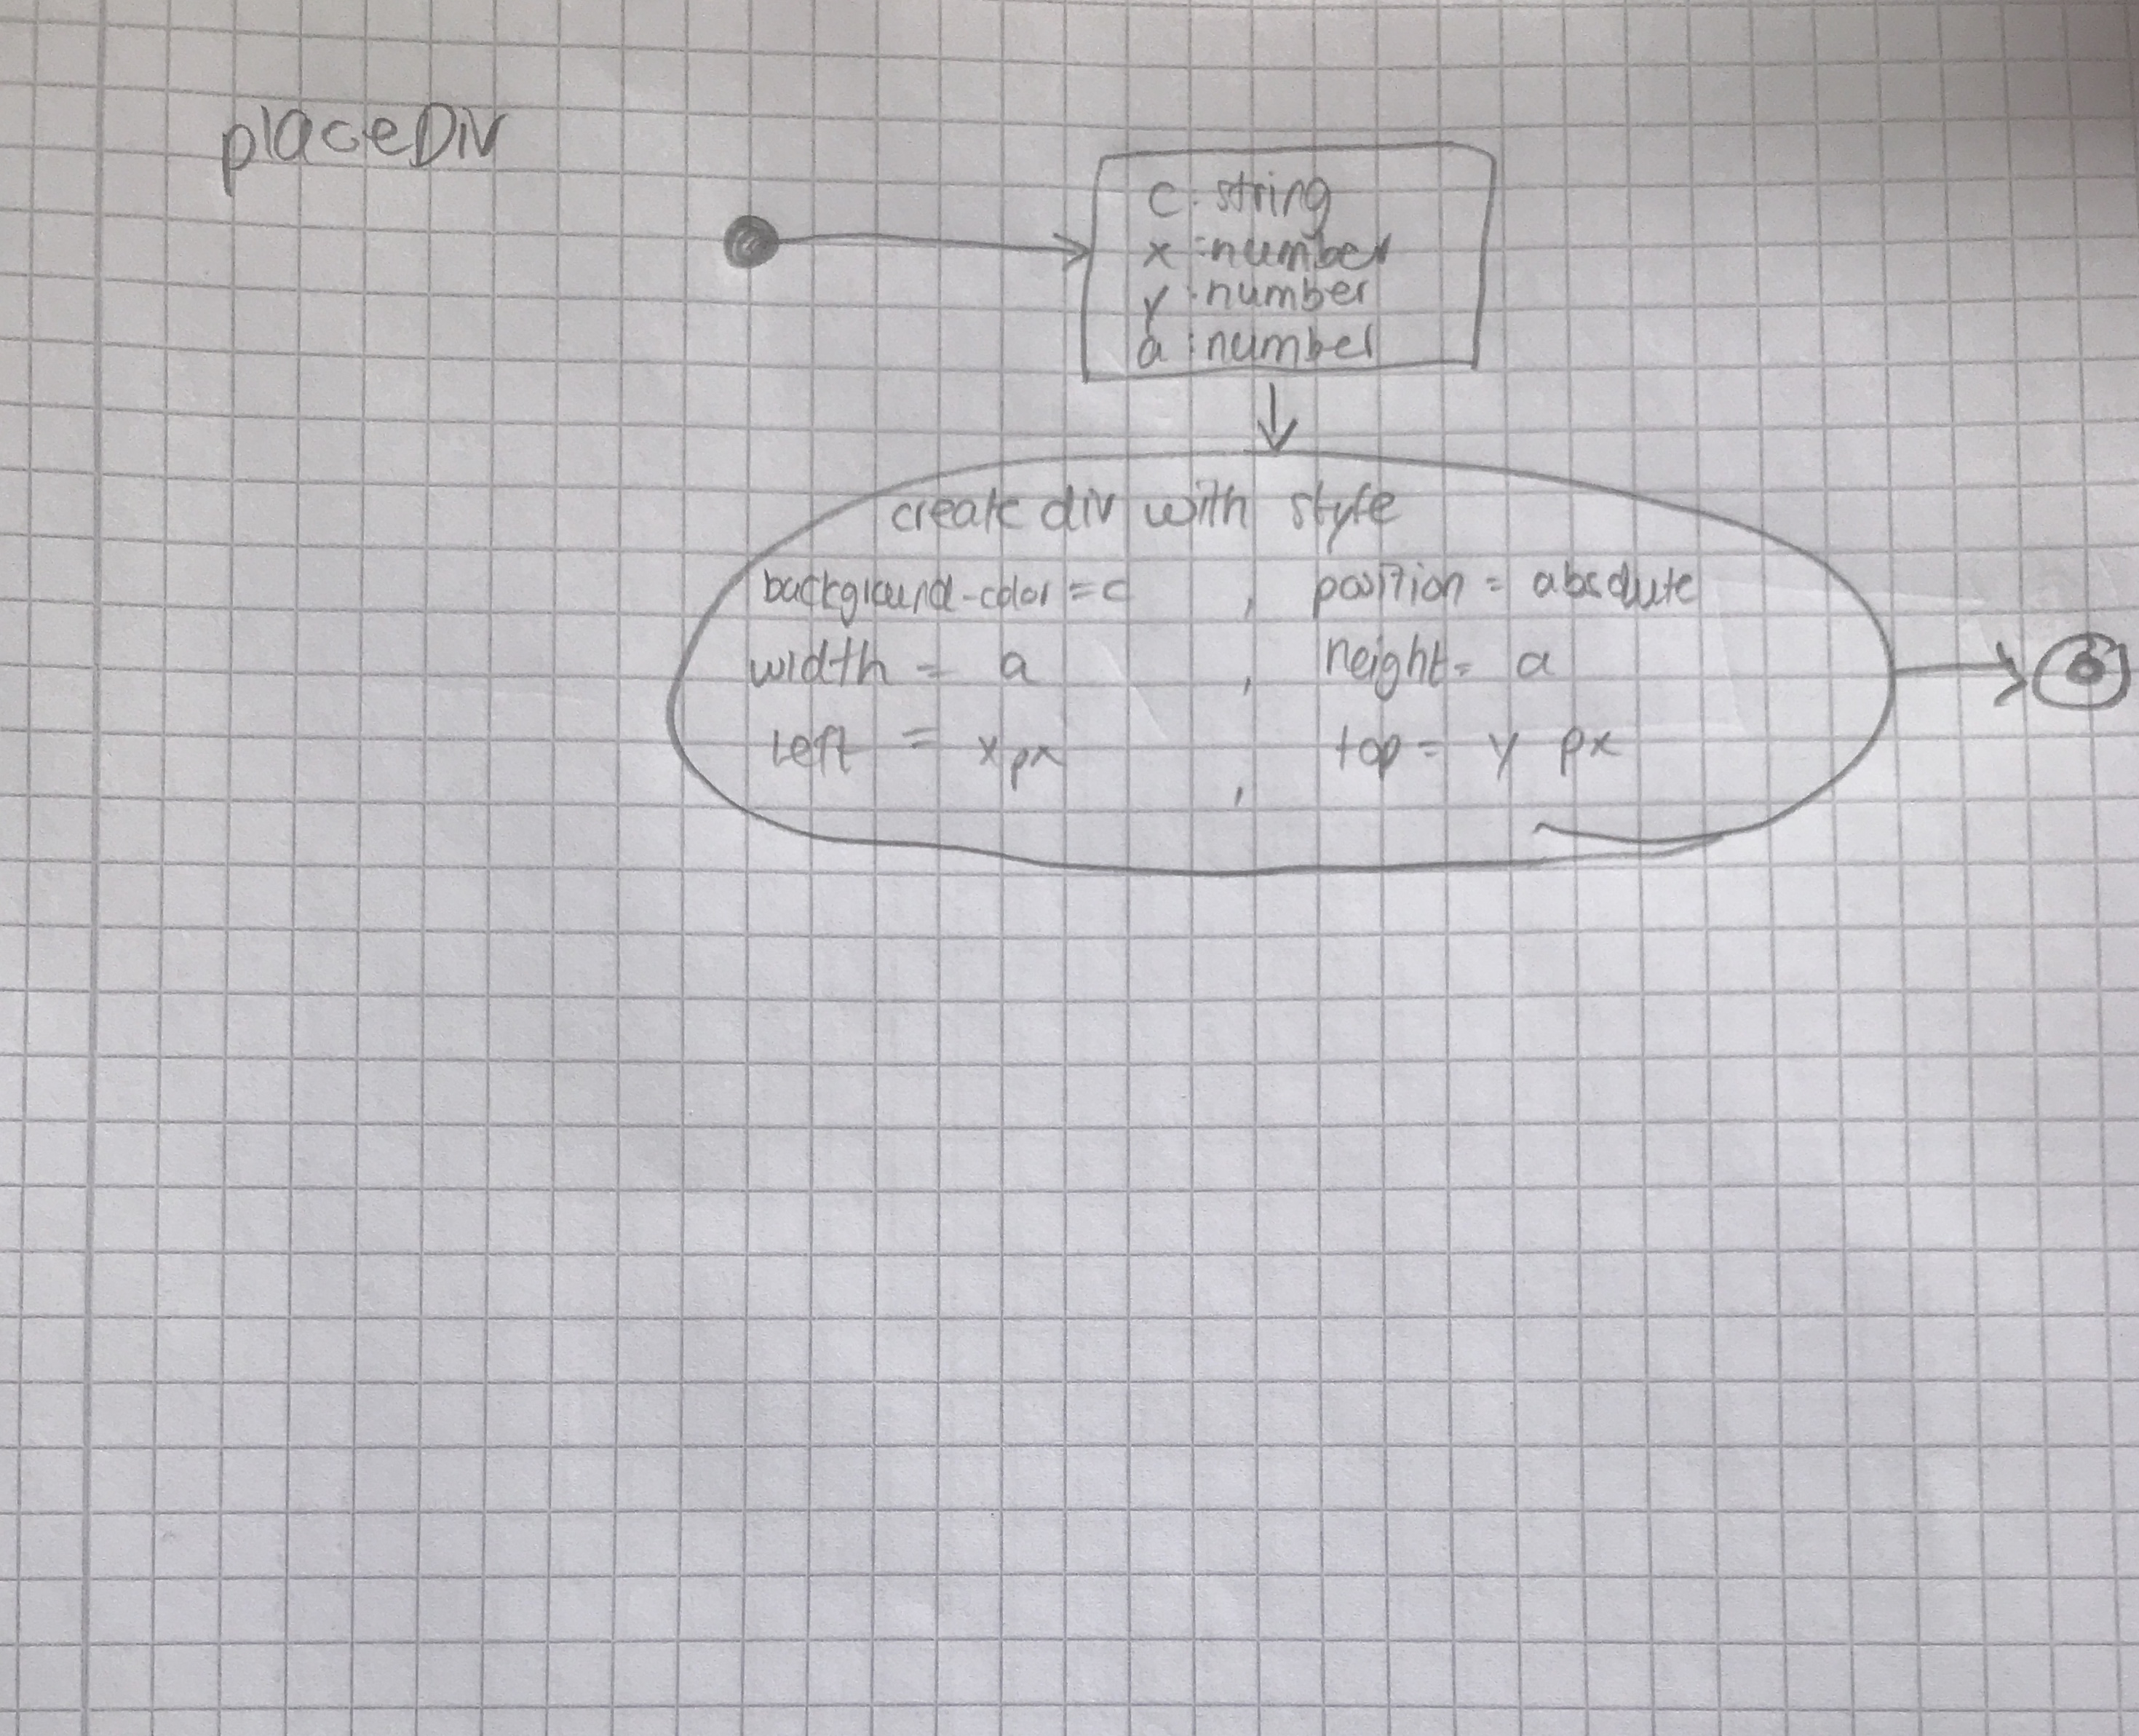 placeDiv
c : string
x : number
y : number
a : number
create div with style
background-color = c , position = absolute
width = a , height = a
Left = x px , top = y px